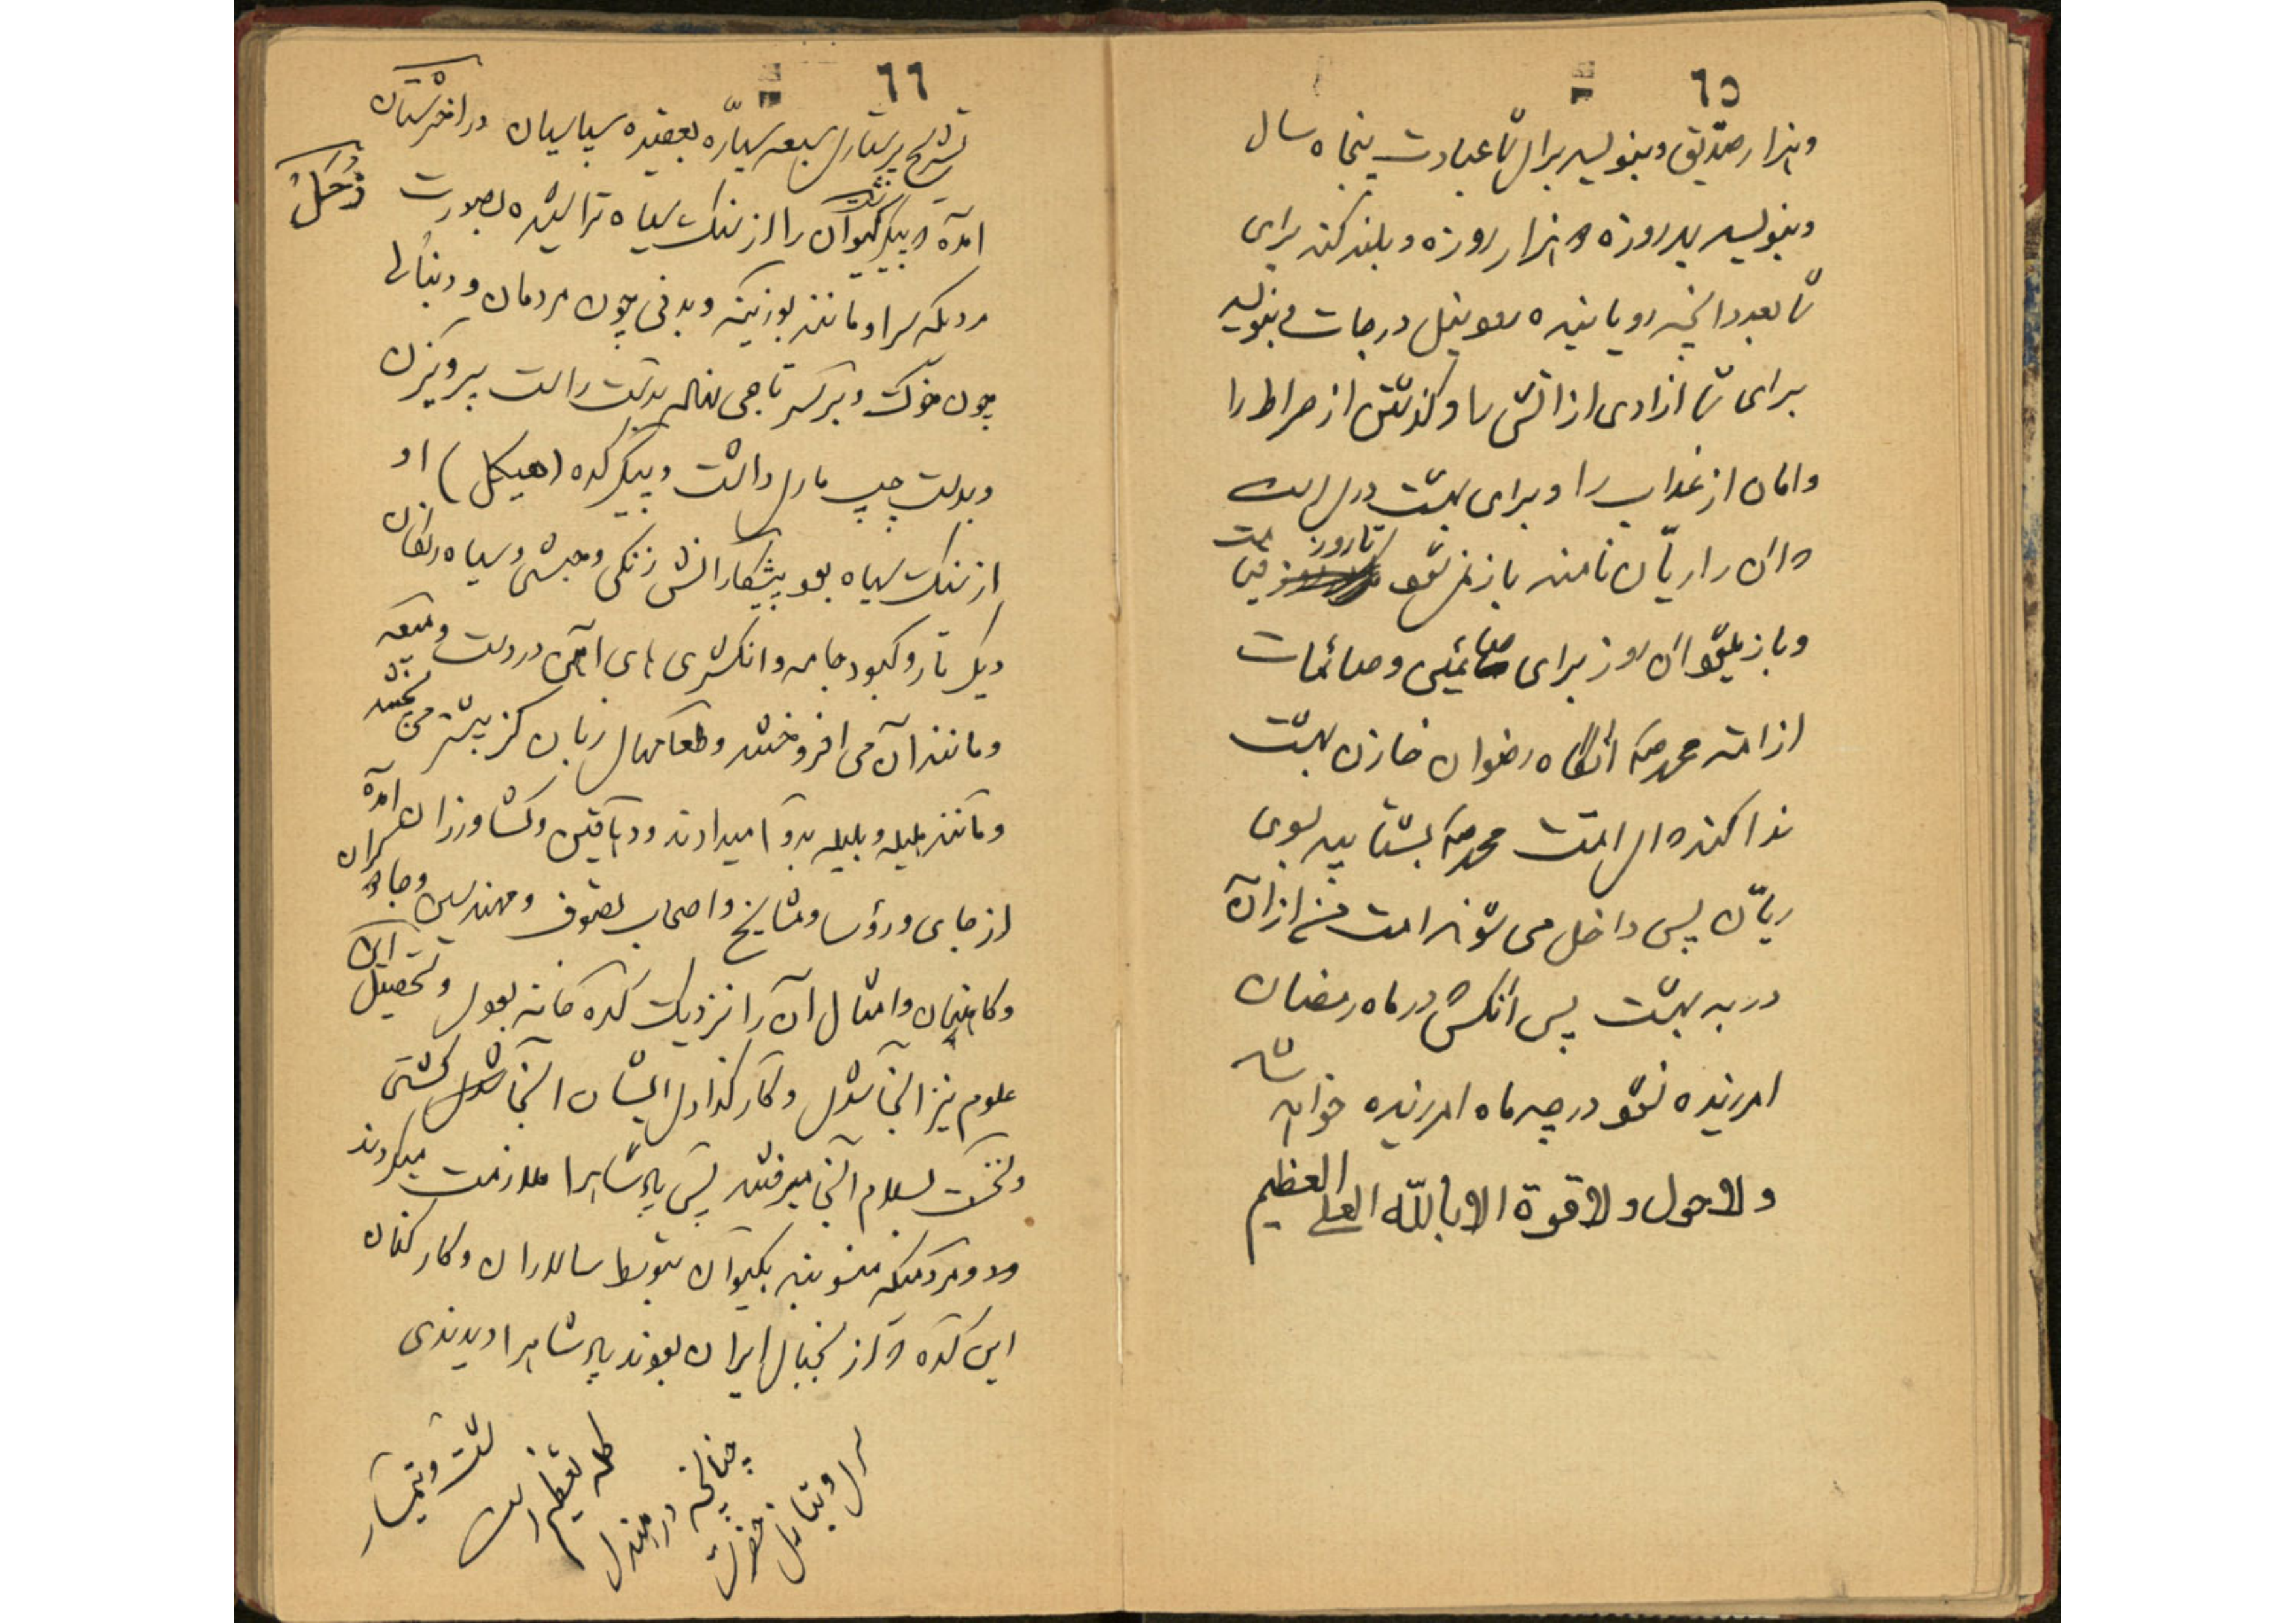 ٦٥
وهزار صدیق و بنویسد برای شما عبادت پنجاه سال
و بنویسد بهر روزه هزار روزه و بلند کند برای
شما بعدد آنچه رویانیده رود نیل درجات و بنویسد
برای شما ازادی از اتش را و گذشتن از صراط را
و امان از عذاب را و برای بهشت دری است
که ان را ریّان نامند باز نمی شود تا روز قیامت
و باز میشود ان روز برای صائمین و صائمات
از امت محمد ص انگاه رضوان خازن بهشت
ندا کند ای امت محمد ص بشتابید بسوی
ریّان پس داخل می شوند امت من از ان
در به بهشت پس انکس که در ماه رمضان
امرزیده نشود در چه ماه امرزیده خواهد شد
ولا حول ولا قوة الا بالله العلی العظیم
٦٦
تشریح پرستاری سبعه سیاره بعقیده سپاسیان در اخترستان
زحل
امده که پیکر کیوان را از سنگ سیاه تراشیده بصورت
مردیکه سر او مانند بوزینه و بدن چون مردمان و دنبالها
چون خوک و بر سر تاجی نهاده بدست راست پرویزن
و بدست چپ ماری داشت و پیکر کده (هیکل) او
از سنگ سیاه بود پیشکارانش زنگی و حبشی و سیاه رنگان
و نیل تار و کبود جامه و انگشتری های آهن در دست و میعه
و مانند آن می افروختند و طعامهای زبان گز بیشتر می پختند
و مانند هلیله و بلیله بدوا میدادند و دهاقین و کشاورزان
از جای و رؤسا و مشایخ و اصحاب تصوف و مهندسین و جادوگران
و کاهنان و امثال آن را نزدیک کده خانه بودی و تحصیل این
علوم نیز آنجا شدی و کار گذاری ایشان آنجا گشتی
و نخست بسلام آنجا میرفتند پس پادشاه را ملازمت میکردند
و مردمیکه منسوبند بکیوان بتوسط سالاران و کارکنان
این کده که از نجبای ایران بودند پادشاه را دیدندی
شت و تیمسار
کلمه تعظیم است
چنانچه در هندی
سری و بتازی حضرت